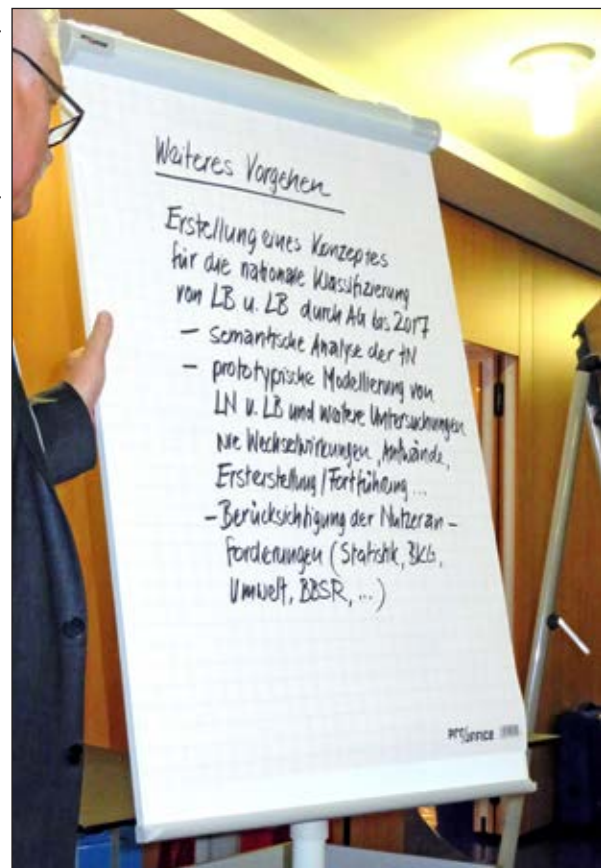 Weiteres Vorgehen
Erstellung eines Konzeptes
für die nationale Klassifizierung
von LB u. LB durch AG bis 2017
– semantische Analyse der tN
– prototypische Modellierung von
LN u. LB und weitere Untersuchungen
wie Wechselwirkungen, Aufwände,
Ersterstellung/Fortführung ...
– Berücksichtigung der Nutzeran-
forderungen (Statistik, BKG,
Umwelt, BBSR, ...)
pro/office